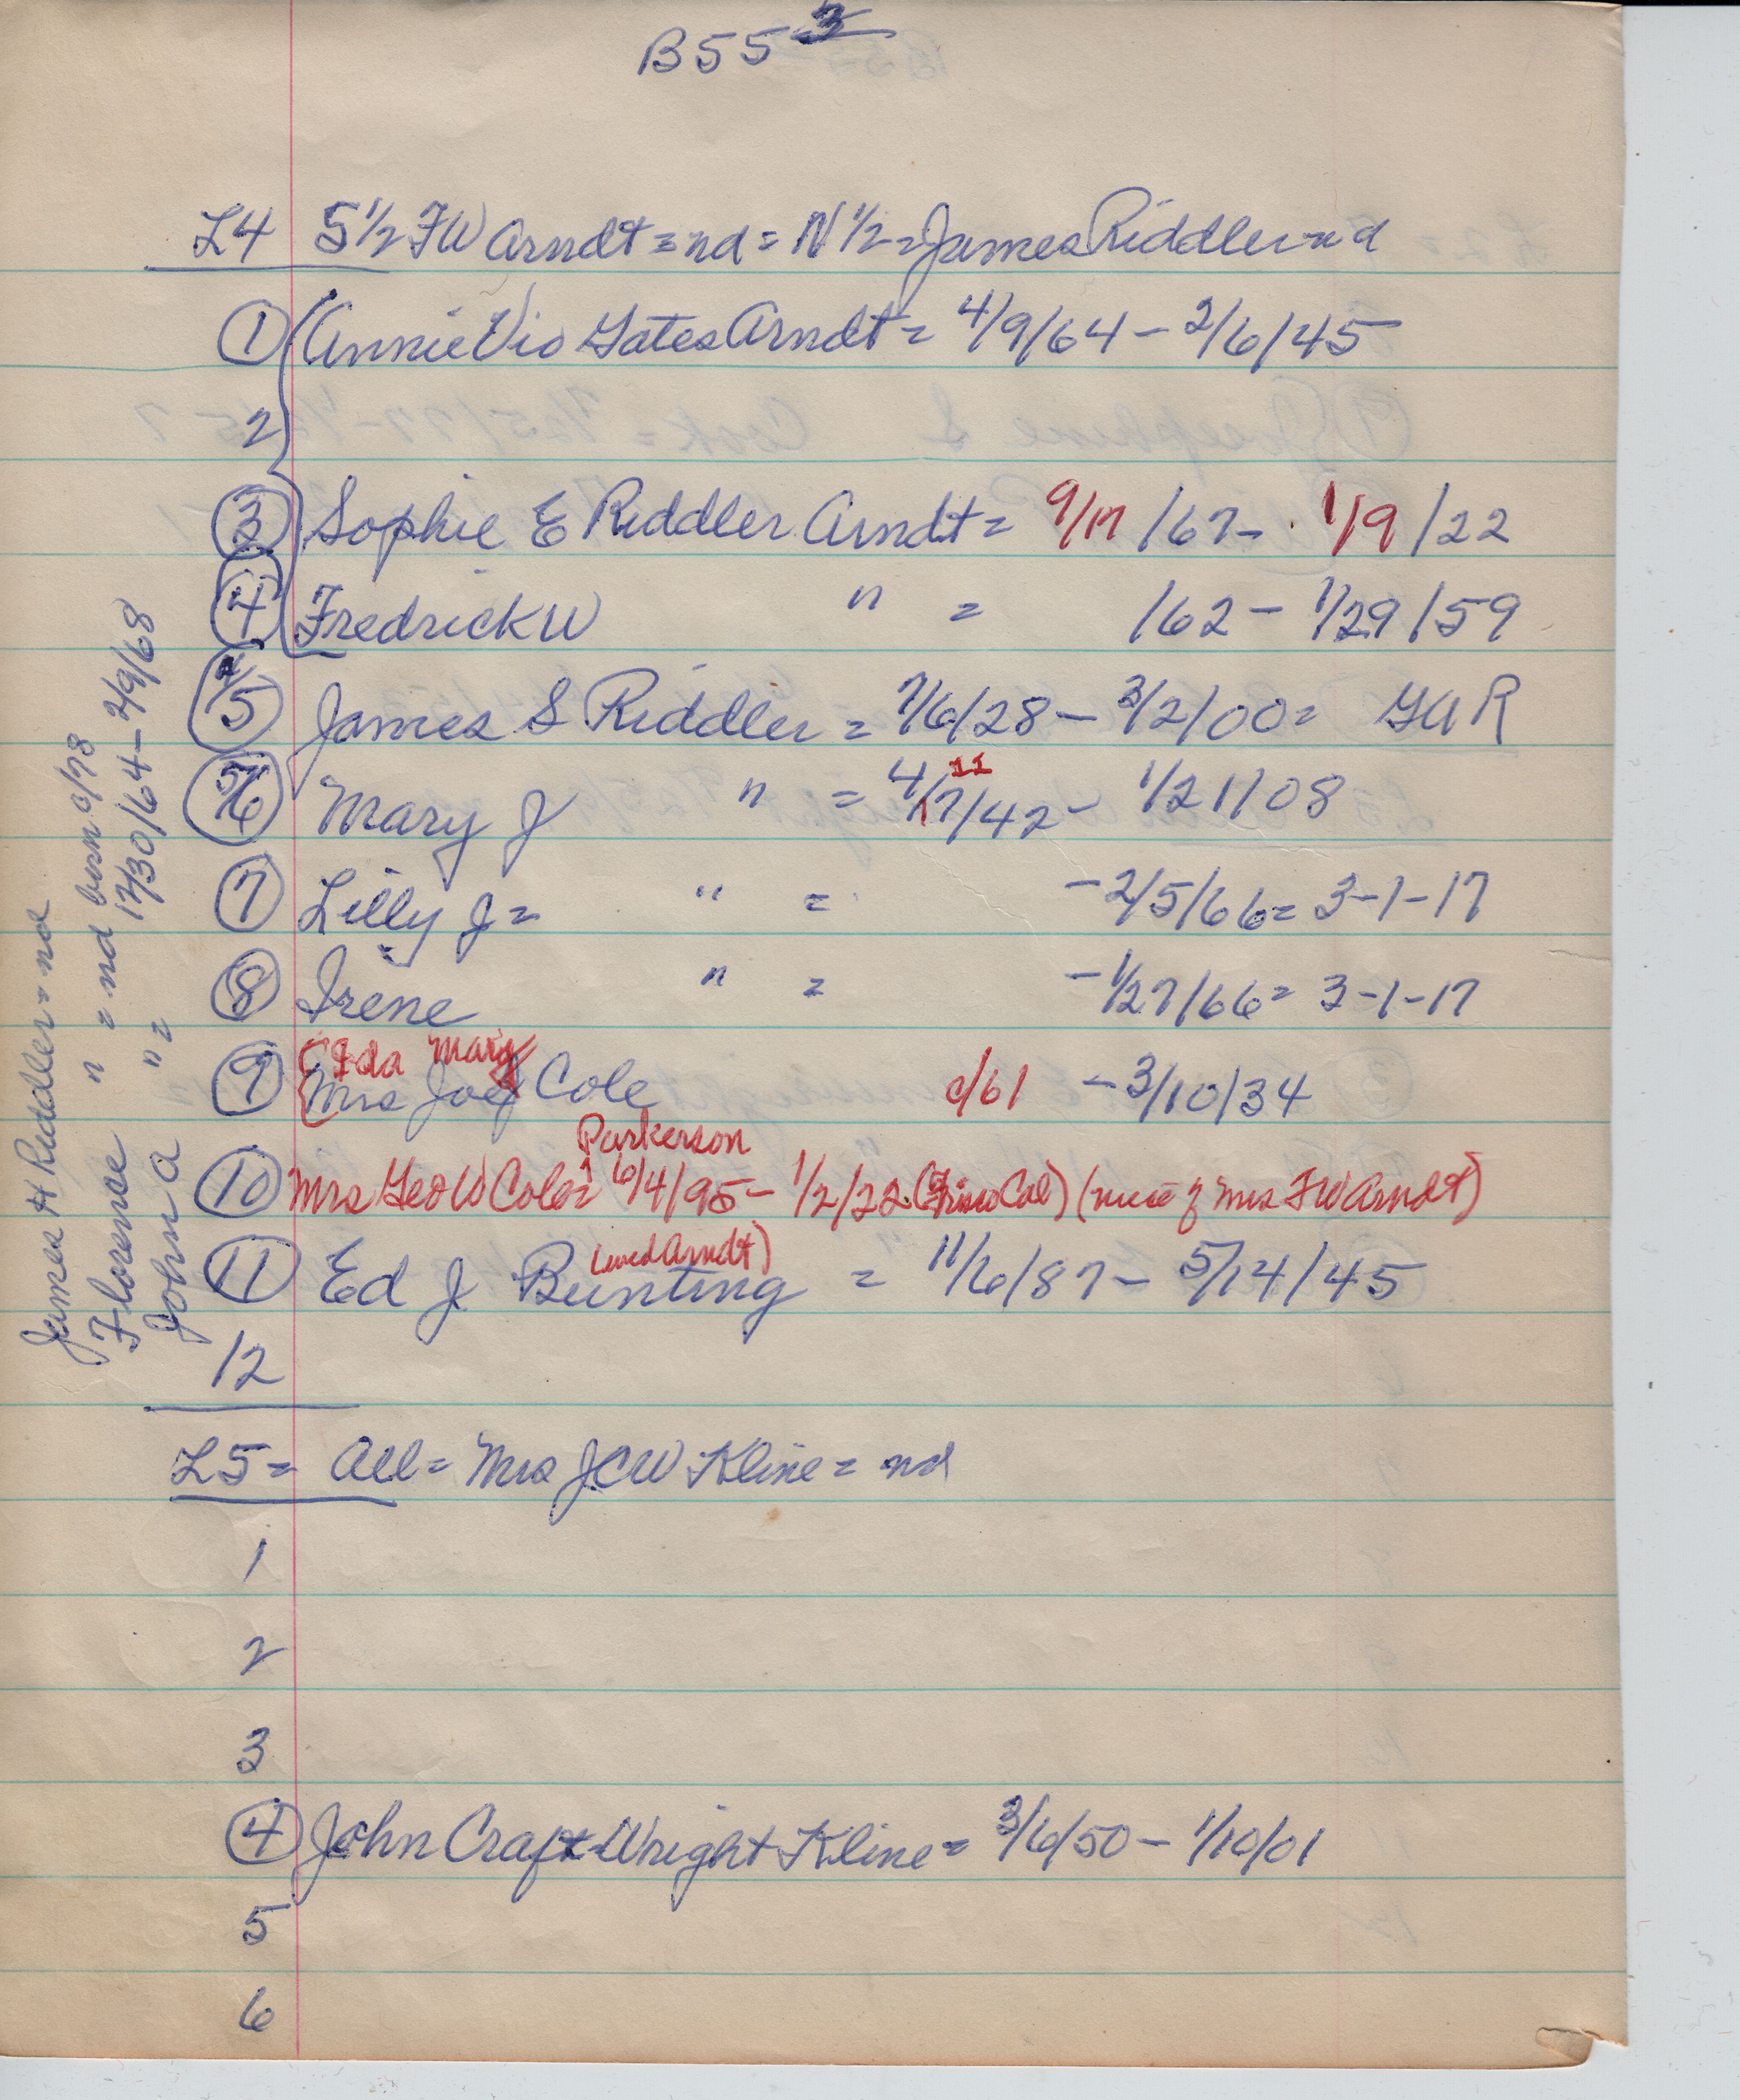 B55 3
L4 S 1/2 FW Arndt = nd = N 1/2 = James Riddler = nd
1 Annie Vio Yates Arndt = 4/9/64 - 2/6/45
2
3 Sophie E Riddler Arndt = 9/17/67 - 1/9/22
4 Fredrick W " = /62 - 1/29/59
5 James S Riddler = 7/6/28 - 3/2/00 = GAR
6 Mary J " = 4/11/42 - 1/21/08
7 Lilly J = " = - 2/5/66 = 3-1-17
8 Irene " = - 1/27/66 = 3-1-17
(Ida Mary
9 Mrs Joe Cole c/61 - 3/10/34
Parkerson
10 Mrs Geo W Cole = 6/4/95 - 1/2/22 (Frisco Cal) (niece of Mrs FW Arndt)
Arndt)
11 Ed J Bunting = 11/6/87 - 5/14/45
12
L5 = All = Mrs JCW Kline = nd
1
2
3
4 John Craft Wright Kline = 3/6/50 - 1/10/01
5
6
James H Riddler = nd
Florense " = nd born c/78
John A " = 12/30/64 - 2/9/68